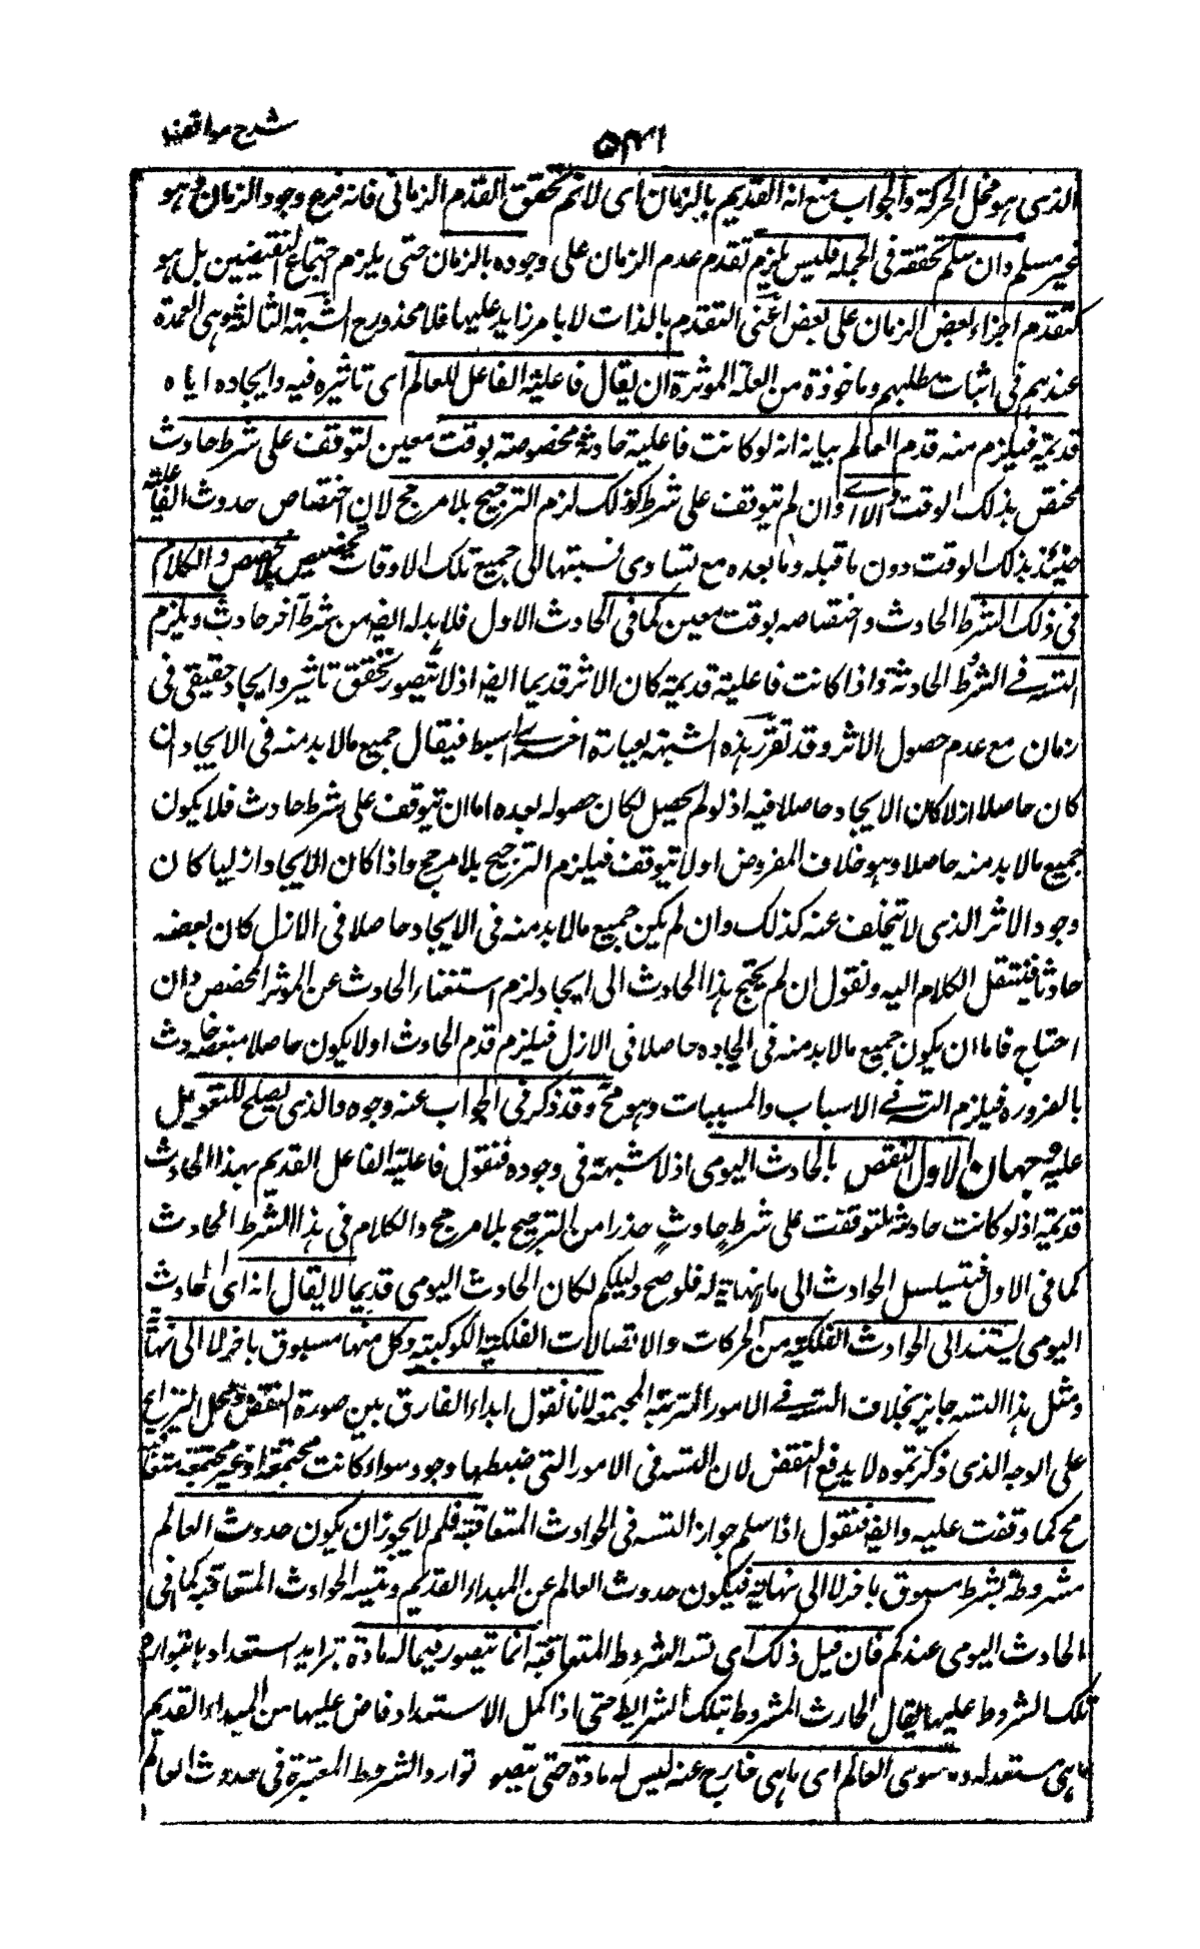 شرح مواقف
۵۴۱
الذى هو محل الحركة والجواب منع انه القديم بالزمان اى لا نم تحقق القدم الزمانى فانه فرع وجود الزمان وهو
غير مسلم وان سلم تحققه فى الجملة فليس يلزم تقدم عدم الزمان على وجوده بالزمان حتى يلزم اجتماع النقيضين بل هو
كتقدم اجزاء بعض الزمان على بعض اعنى التقدم بالذات لا بامر زايد عليها فلا محذور ح الشبهة الثالثة وهى العمدة
عندهم فى اثبات مطلبهم وماخوذة من العلة الموثرة ان يقال فاعلية الفاعل للعالم اى تاثيره فيه وايجاده اياه
قديمة فيلزم منه قدم العالم بيانه انه لو كانت فاعلية حادثة مخصوصة بوقت معين لتوقفت على شرط حادث
مختص بذلك الوقت والا اى وان لم يتوقف على شرط كذلك لزم الترجيح بلا مرجح لان اختصاص حدوث الفاعلية
حينئذ بذلك الوقت دون ما قبله وما بعده مع تساوى نسبتها الى جميع تلك الاوقات تخصيص بلا مخصص والكلام
فى ذلك الشرط الحادث واختصاصه بوقت معين كما فى الحادث الاول فلا بد له ايضا من شرط آخر حادث ويلزم
التسه فى الشروط الحادثة واذا كانت فاعلية قديمة كان الاثر قديما ايضا اذ لا يتصور تحقق تاثير وايجاد حقيقى فى
زمان مع عدم حصول الاثر وقد تقرر هذه الشبهة بعبارة اخرى ابسط فيقال جميع ما لا بد منه فى الايجاد ان
كان حاصلا ازلا كان الايجاد حاصلا فيه اذ لو لم يحصل لكان حصوله بعده اما ان يتوقف على شرط حادث فلا يكون
جميع ما لا بد منه حاصلا وهو خلاف المفروض او لا يتوقف فيلزم الترجيح بلا مرجح واذا كان الايجاد ازليا كان
وجود الاثر الذى لا يتخلف عنه كذلك وان لم يكن جميع ما لا بد منه فى الايجاد حاصلا فى الازل كان بعضه
حادثا فينتقل الكلام اليه ونقول ان لم يحتج هذا الحادث الى ايجاد لزم استغناء الحادث عن الموثر المخصص وان
احتاج فاما ان يكون جميع ما لا بد منه فى ايجاده حاصلا فى الازل فيلزم قدم الحادث او لا يكون حاصلا فبعضه حادث
بالضرورة فيلزم التسه فى الاسباب والمسببات وهو مح وقد ذكر فى الجواب عنه وجوه والذى يصلح للتعويل
عليه وجهان الاول النقض بالحادث اليومى اذ لا شبهة فى وجوده فنقول فاعلية الفاعل القديم بهذا الحادث
قديمة اذ لو كانت حادثة لتوقفت على شرط حادث حذرا من الترجيح بلا مرجح والكلام فى هذا الشرط الحادث
كما فى الاول فيتسلسل الحوادث الى ما لا نهاية له فلو صح دليلكم لكان الحادث اليومى قديما لا يقال انه اى الحادث
اليومى يستند الى الحوادث الفلكية من الحركات والاتصالات الفلكية الكوكبية وكل منها مسبوق باخر لا الى نهاية
ومثل هذا التسه جايز بخلاف التسه فى الامور المترتبة المجتمعة لانا نقول ابداء الفارق بين صورة النقض ومحل النزاع
على الوجه الذى ذكرتموه لا يدفع النقض لان التسه فى الامور التى ضبطها وجود سواء كانت مجتمعة او غير مجتمعة متعاقبة
مح كما وقفت عليه وايضا فنقول اذا سلم جواز التسه فى الحوادث المتعاقبة فلم لا يجوز ان يكون حدوث العالم
مشروطة بشرط مسبوق باخر لا الى نهاية فيكون حدوث العالم عن المبداء القديم وتيسه الحوادث المتعاقبة كما فى
الحادث اليومى عندكم فان قيل ذلك اى تسه الشروط المتعاقبة انما يتصور فيما له مادة تزايد استعداد با بتوارد
تلك الشروط عليها يقال الحادث المشروط بتلك الشرايط حتى اذا كمل الاستعداد فاض عليها من المبداء القديم
ما هى مستعدة له وسوى العالم اى ما هى خارج عنه ليس له مادة حتى يتصو توارد الشروط المعتبرة فى حدوث العالم